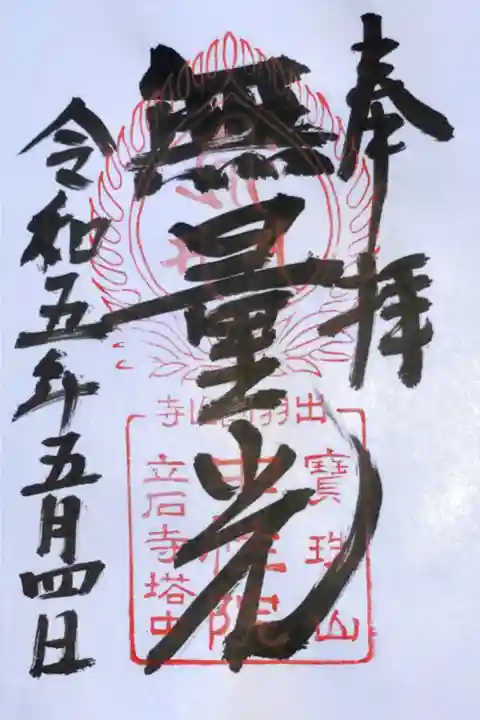 奉拝
無量光
令和五年五月四日
出羽國山寺
寶珠山
中性院
立石寺塔中